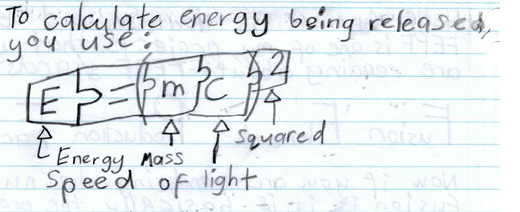 To calculate energy being released,
you use:
E = (m c) 2
Energy Mass Squared
Speed of light